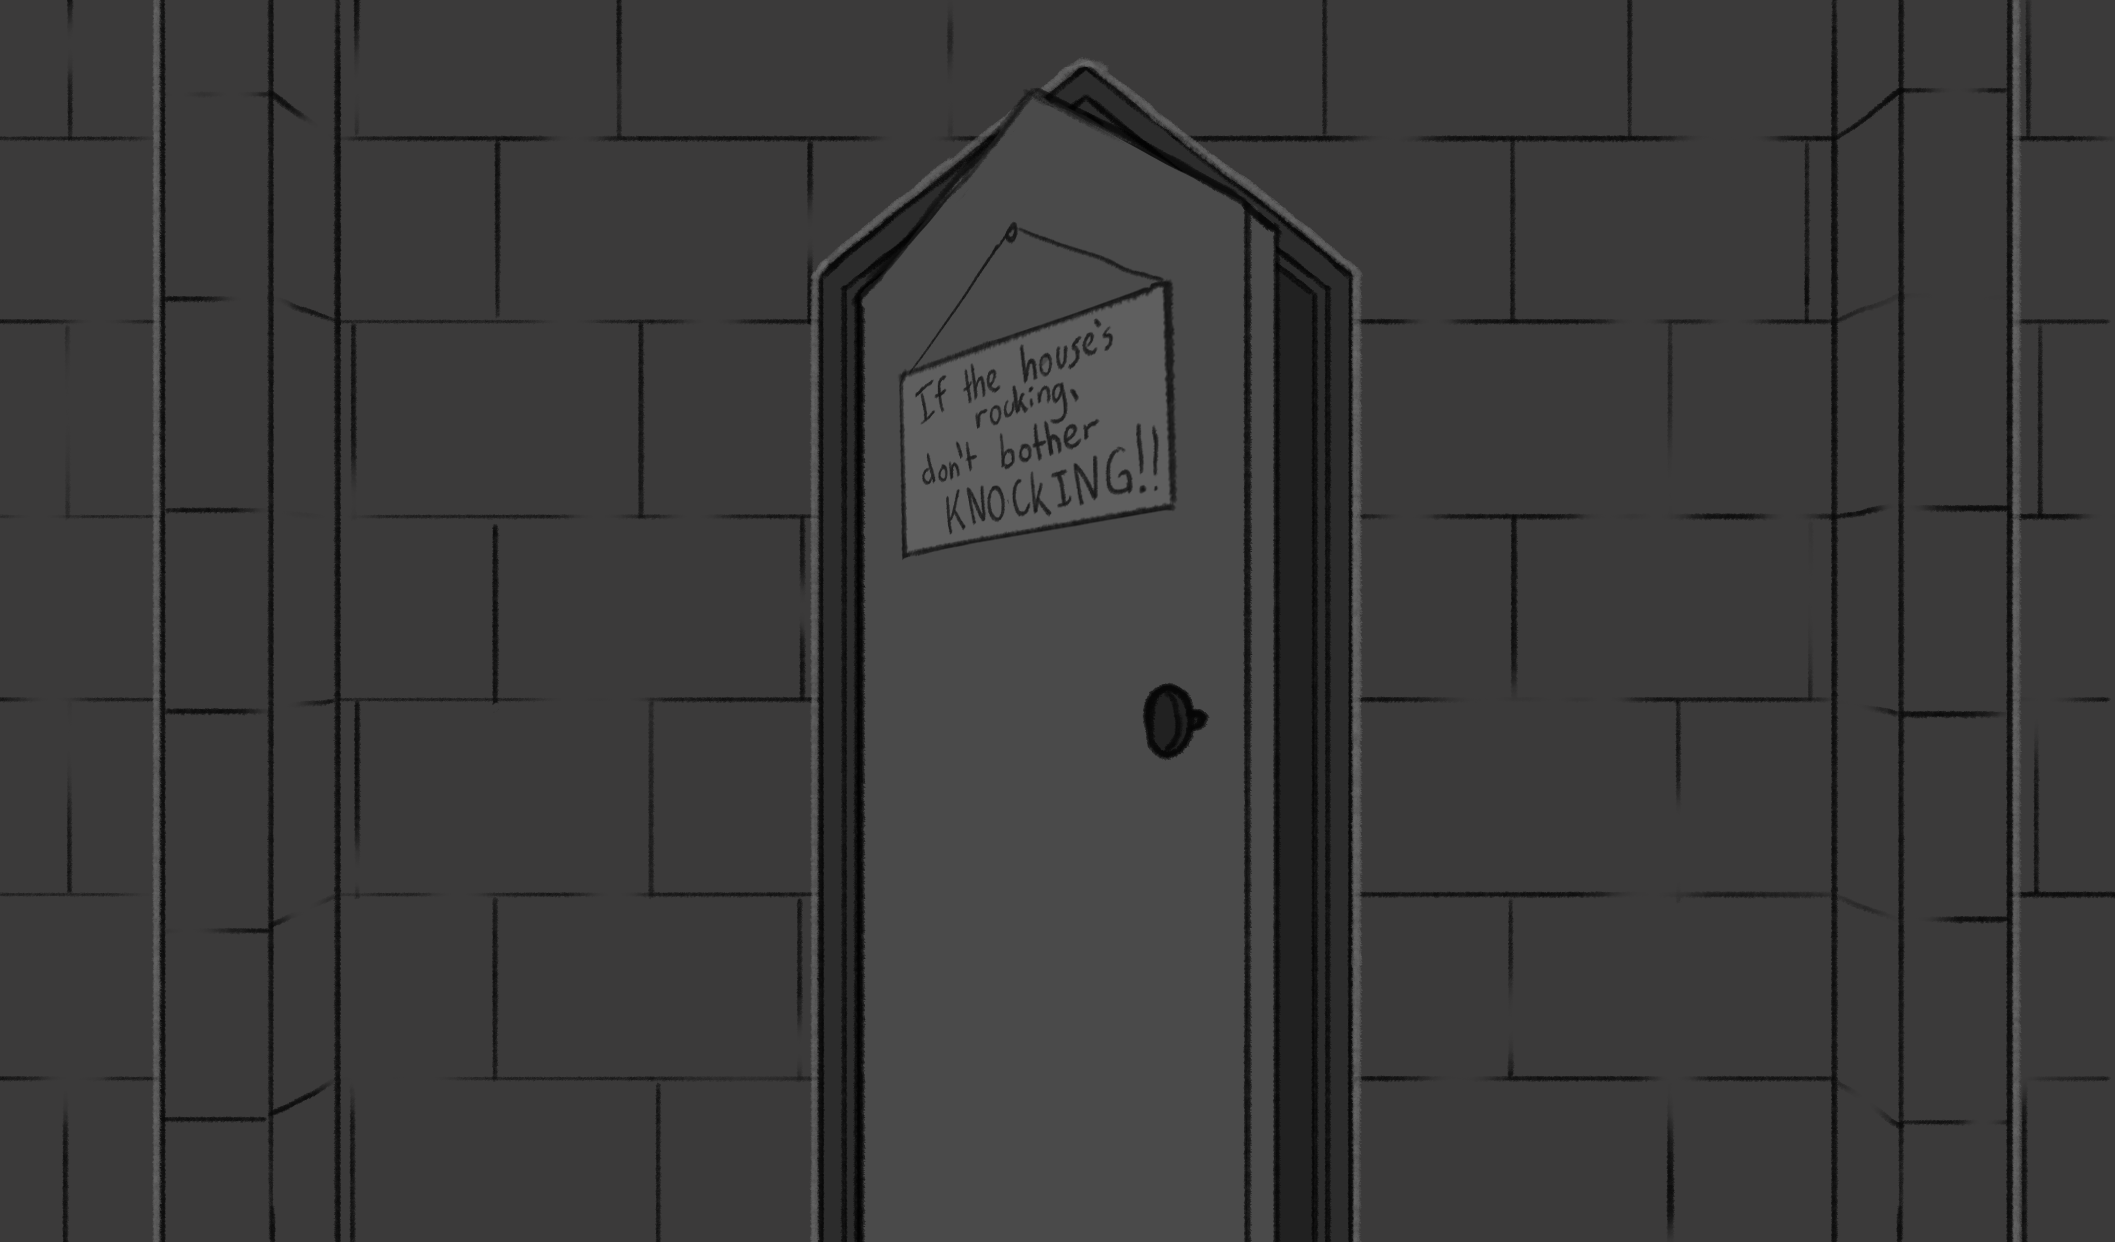 If the house's
rocking,
don't bother
KNOCKING!!